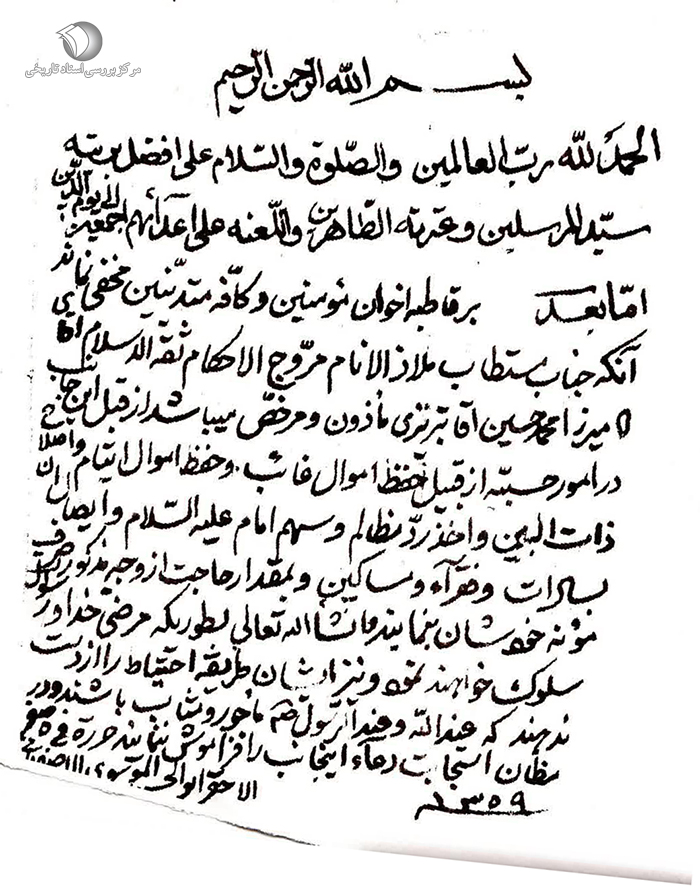 مرکز بررسی اسناد تاریخی
بسم الله الرحمن الرحیم
الحمد لله رب العالمین والصلوة والسلام علی افضل بریته
سید المرسلین و عترته الطاهرین واللعنه علی اعدائهم اجمعین الی یوم الدین
اما بعد بر قاطبه اخوان مؤمنین و کافه متدینین مخفی نماند
آنکه جناب مستطاب ملاذ الانام مروج الاحکام ثقه الاسلام آقای
میرزا محمد حسین آقا تبریزی مأذون و مرخص میباشد از قبل اینجانب
در امور حسبیه از قبیل حفظ اموال غائب و حفظ اموال ایتام و اصلاح
ذات البین و اخذ رد مظالم و سهم امام علیه السلام و ایصال ان
بسادات و فقرآء و مساکین و بمقدار حاجت از وجه مذکور صرف
مؤنه خودشان بنمایند ما شاء الله تعالی بطوریکه مرضی خدا و رسول
سلوک خواهند نمود و نیز ایشان طریقه احتیاط را از دست
ندهند که عند الله و عند الرسول مأجور و مثاب باشند و در
مظان استجابت دعاء اینجانب را فراموش ننمایند حرره فی ۵ صفر
الاحقر ابوالحسن الموسوی الاصفهانی
۱۳۵۹